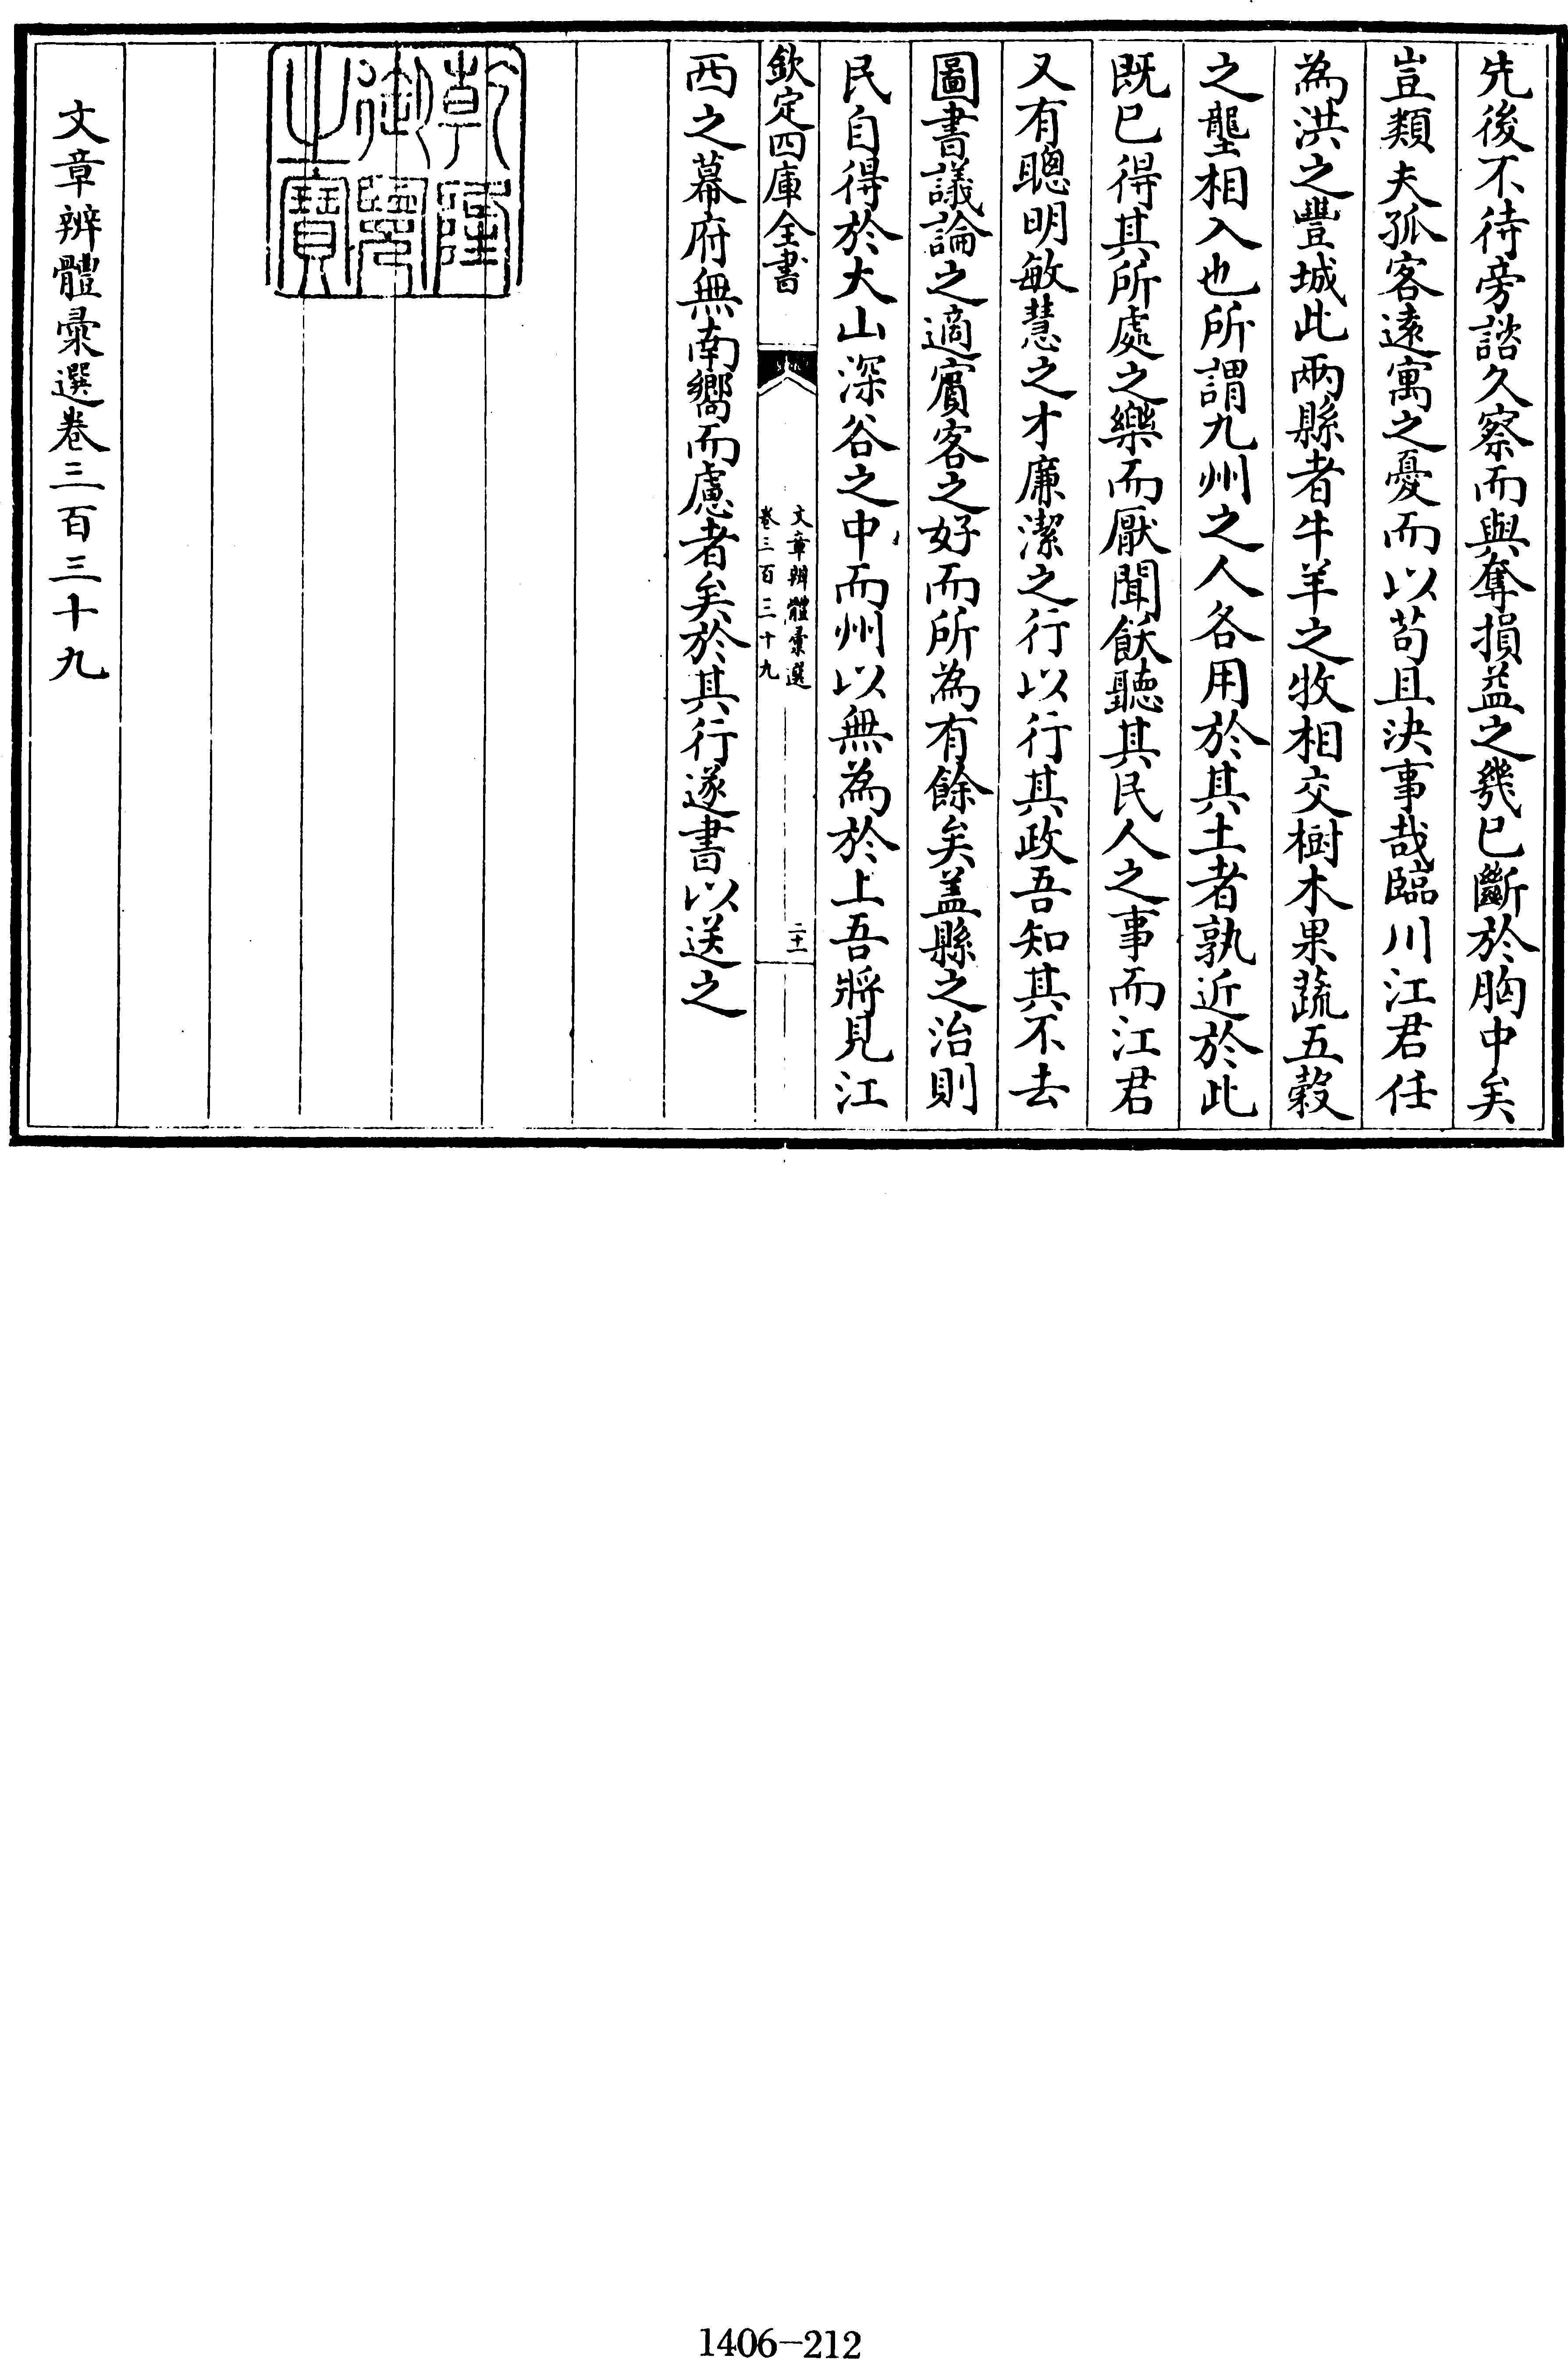 先後不待旁諮久察而與奪損益之幾已斷於胸中矣
豈類夫孤客遠寓之憂而以苟且決事哉臨川江君任
為洪之豐城此兩縣者牛羊之牧相交樹木果蔬五穀
之壟相入也所謂九州之人各用於其土者孰近於此
既已得其所處之樂而厭聞飫聽其民人之事而江君
又有聰明敏慧之才廉潔之行以行其政吾知其不去
圖書議論之適賓客之好而所為有餘矣蓋縣之治則
民自得於大山深谷之中而州以無為於上吾將見江
欽定四庫全書
文章辨體彙選
卷三百三十九
二十一
西之幕府無南嚮而慮者矣於其行遂書以送之
乾隆
御覽
之寶
文章辨體彙選卷三百三十九
1406-212